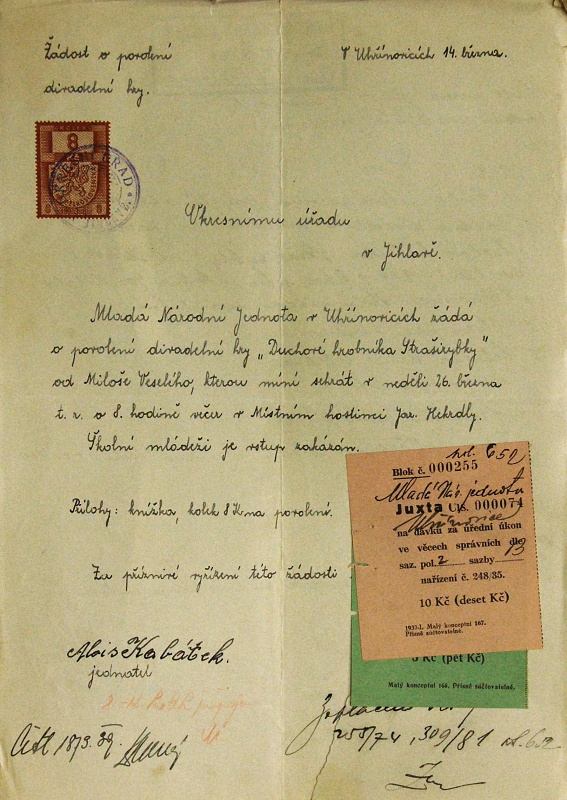 Žádost o povolení
V Uhřínovicích 14. března.
divadelní hry.
KOLEK
8
Okresnímu úřadu
v Jihlavě.
Mladá Národní Jednota v Uhřínovicích žádá
o povolení divadelní hry „Duchové hrobníka Straširybky"
od Miloše Veselého, kterou míní sehrát v neděli 26. března
t. r. o 8. hodině večer v Místním hostinci Jar. Hekrdly.
Školní mládeži je vstup zakázán.
Přílohy: knížka, kolek 8 Kč na povolení.
Za příznivé vyřízení této žádosti
Alois Kabátek.
jednatel
pol. 652
Blok č. 000255
Mladá Nár. jednota
Juxta č. 000074
Uhřínovice
na dávku za úřední úkon
ve věcech správních dle
saz. pol. 2 sazby 13
nařízení č. 248/35.
10 Kč (deset Kč)
1937-I. Malý konceptní 167.
Přísně súčtovatelné.
5 Kč (pět Kč)
Malý konceptní 166. Přísně súčtovatelné.
255/74, 309/81